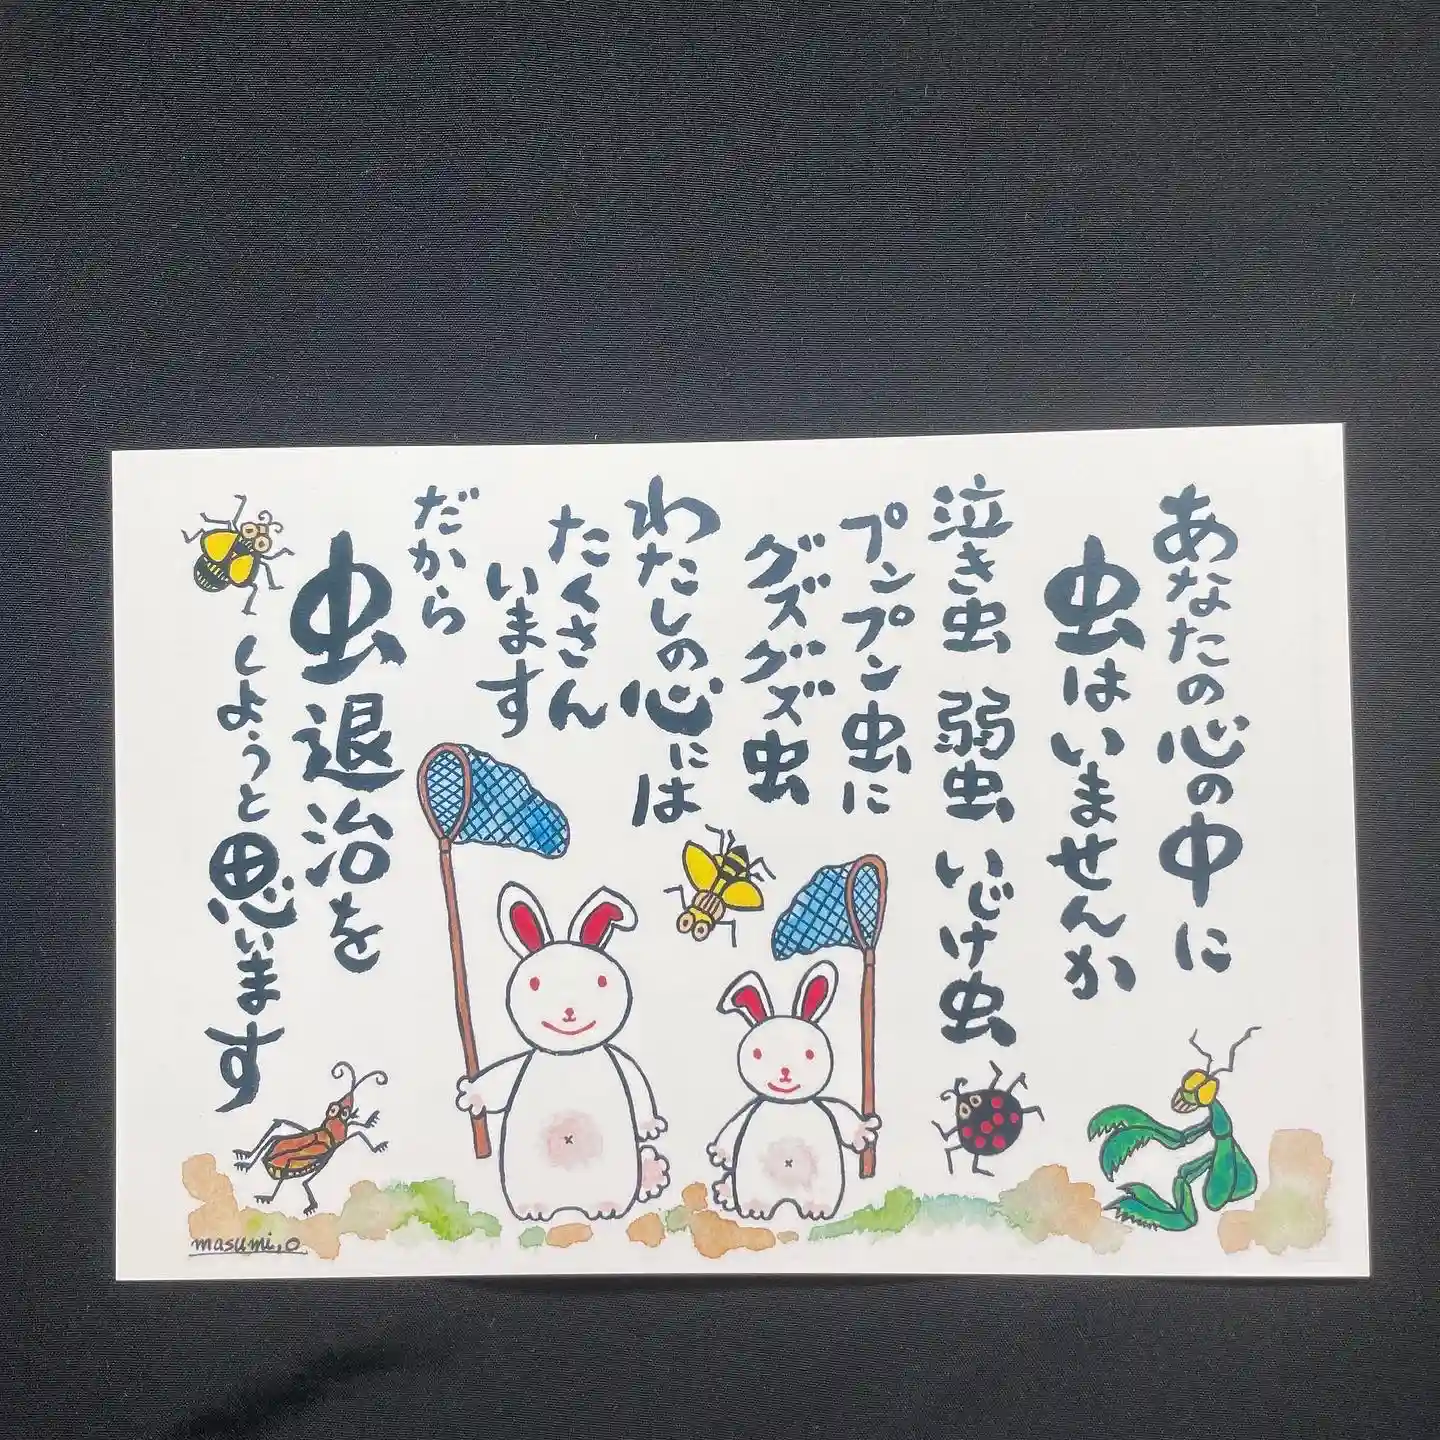 あなたの心の中に
虫はいませんか
泣き虫 弱虫 いじけ虫
プンプン虫に
グズグズ虫
わたしの心には
たくさん
います
だから
虫退治を
しようと思います
masumi.o